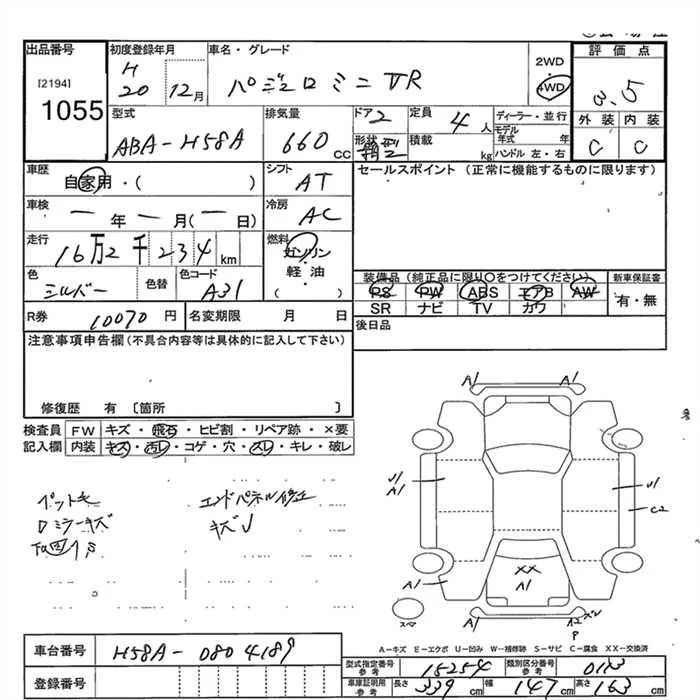 出品番号
[2194]
1055
初度登録年月
H
20 12月
車名・グレード
パジェロミニ VR
2WD
4WD
評価点
3.5
型式
ABA-H58A
排気量
660 CC
ドア 2
形状
定員 4 人
積載 kg
ディーラー・並行
モデル年式 年
ハンドル 左・右
外装 内装
C C
車歴
自家用・( )
シフト
AT
セールスポイント (正常に機能するものに限ります)
車検
― 年 ― 月(― 日)
冷房
AC
走行
16万2千234km
燃料
ガソリン
軽油
( )
色
シルバー
色替
色コード
A31
装備品(純正品に限り○をつけてください)
PS PW ABS エアB AW
SR ナビ TV カワ
新車保証書
有・無
R券 10070 円
名変期限 月 日
後日品
注意事項申告欄(不具合内容等は具体的に記入して下さい)
修復歴 有 〔箇所 〕
検査員 FW キズ・飛石・ヒビ割・リペア跡・×要
記入欄 内装 キズ・汚レ・コゲ・穴・スレ・キレ・破レ
ペット毛
Dミラーキズ
下回りS
エンドパネル修正
キズU
A1 A1
U1
A1
U1
C2
XX
A1
A1
A1 A2 ズレ
P
スペア
A-キズ E-エクボ U-凹み W-補修跡 S-サビ C-腐食 XX-交換済
車台番号
H58A-0804189
登録番号
型式指定番号参考 15254
類別区分番号参考 0113
車庫証明用参考 長さ 339 cm 幅 147 cm 高さ 163 cm